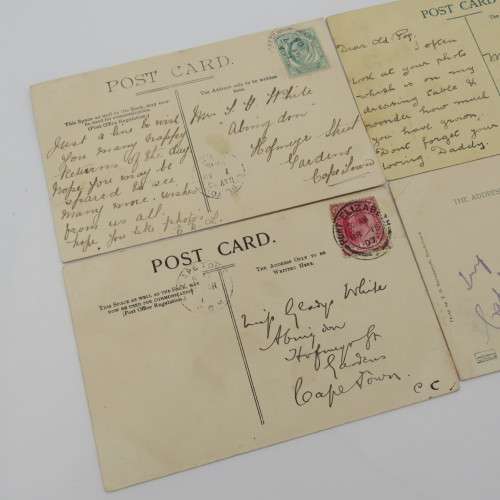 POST CARD.
This Space as well as the Back, may now
be used for communication
(Post Office Regulation)
The Address only to be written
here.
Just a line to wish
you many happy
Returns of the day
hope you may be
spared to see
many more. wishes
from us all.
hope you like photos
White
Abingdon
Hofmeyr Street
Gardens
Cape Town
POST CARD
Dear Old Pop,
I often
look at your photo
which is on my
dressing table &
wonder how much
you have grown.
Dont forget your
loving Daddy.
POST CARD.
THIS SPACE AS WELL AS THE BACK, MAY
NOW BE USED FOR COMMUNICATION
(Post Office Regulation)
THE ADDRESS ONLY TO BE
WRITTEN HERE
PORT ELIZABETH
Miss Gladys White
Abingdon
Hofmeyr St
Gardens
Cape Town.
C C.
THE ADDRESS